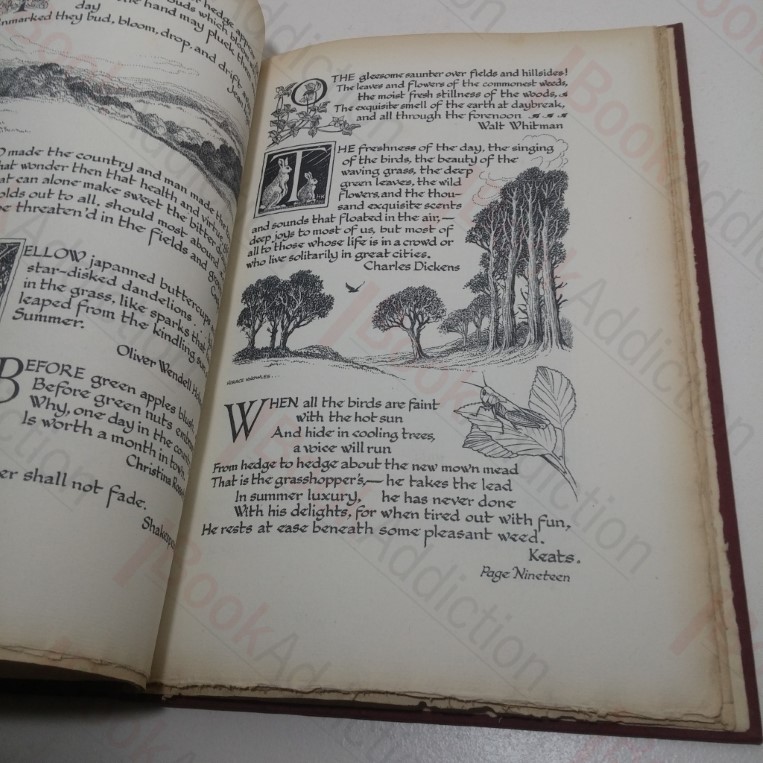 hedge, app
ouds which blo
day
the hand may pluck them
nmarked they bud, bloom, drop, and drift
made the country and man made the
hat wonder then that health and virtue
at can alone make sweet the bitter d
olds out to all, should most abound
be threaten'd in the fields and gro
ELLOW japanned buttercups
star-disked dandelions
in the grass, like sparks that
leaped from the kindling sun
Summer.
Oliver Wendell Hol
BEFORE green apples blush,
Before green nuts embro
Why, one day in the coun
Is worth a month in town.
Christina Ross
er shall not fade.
Shakespe
O THE gleesome saunter over fields and hillsides!
The leaves and flowers of the commonest weeds,
the moist fresh stillness of the woods,
The exquisite smell of the earth at daybreak,
and all through the forenoon
Walt Whitman
THE freshness of the day, the singing
of the birds, the beauty of the
waving grass, the deep
green leaves, the wild
flowers, and the thou-
sand exquisite scents
and sounds that floated in the air,—
deep joys to most of us, but most of
all to those whose life is in a crowd or
who live solitarily in great cities.
Charles Dickens
WHEN all the birds are faint
with the hot sun
And hide in cooling trees,
a voice will run
From hedge to hedge about the new mown mead
That is the grasshopper's,— he takes the lead
In summer luxury, he has never done
With his delights, for when tired out with fun,
He rests at ease beneath some pleasant weed.
Keats.
Page Nineteen
BookAddiction